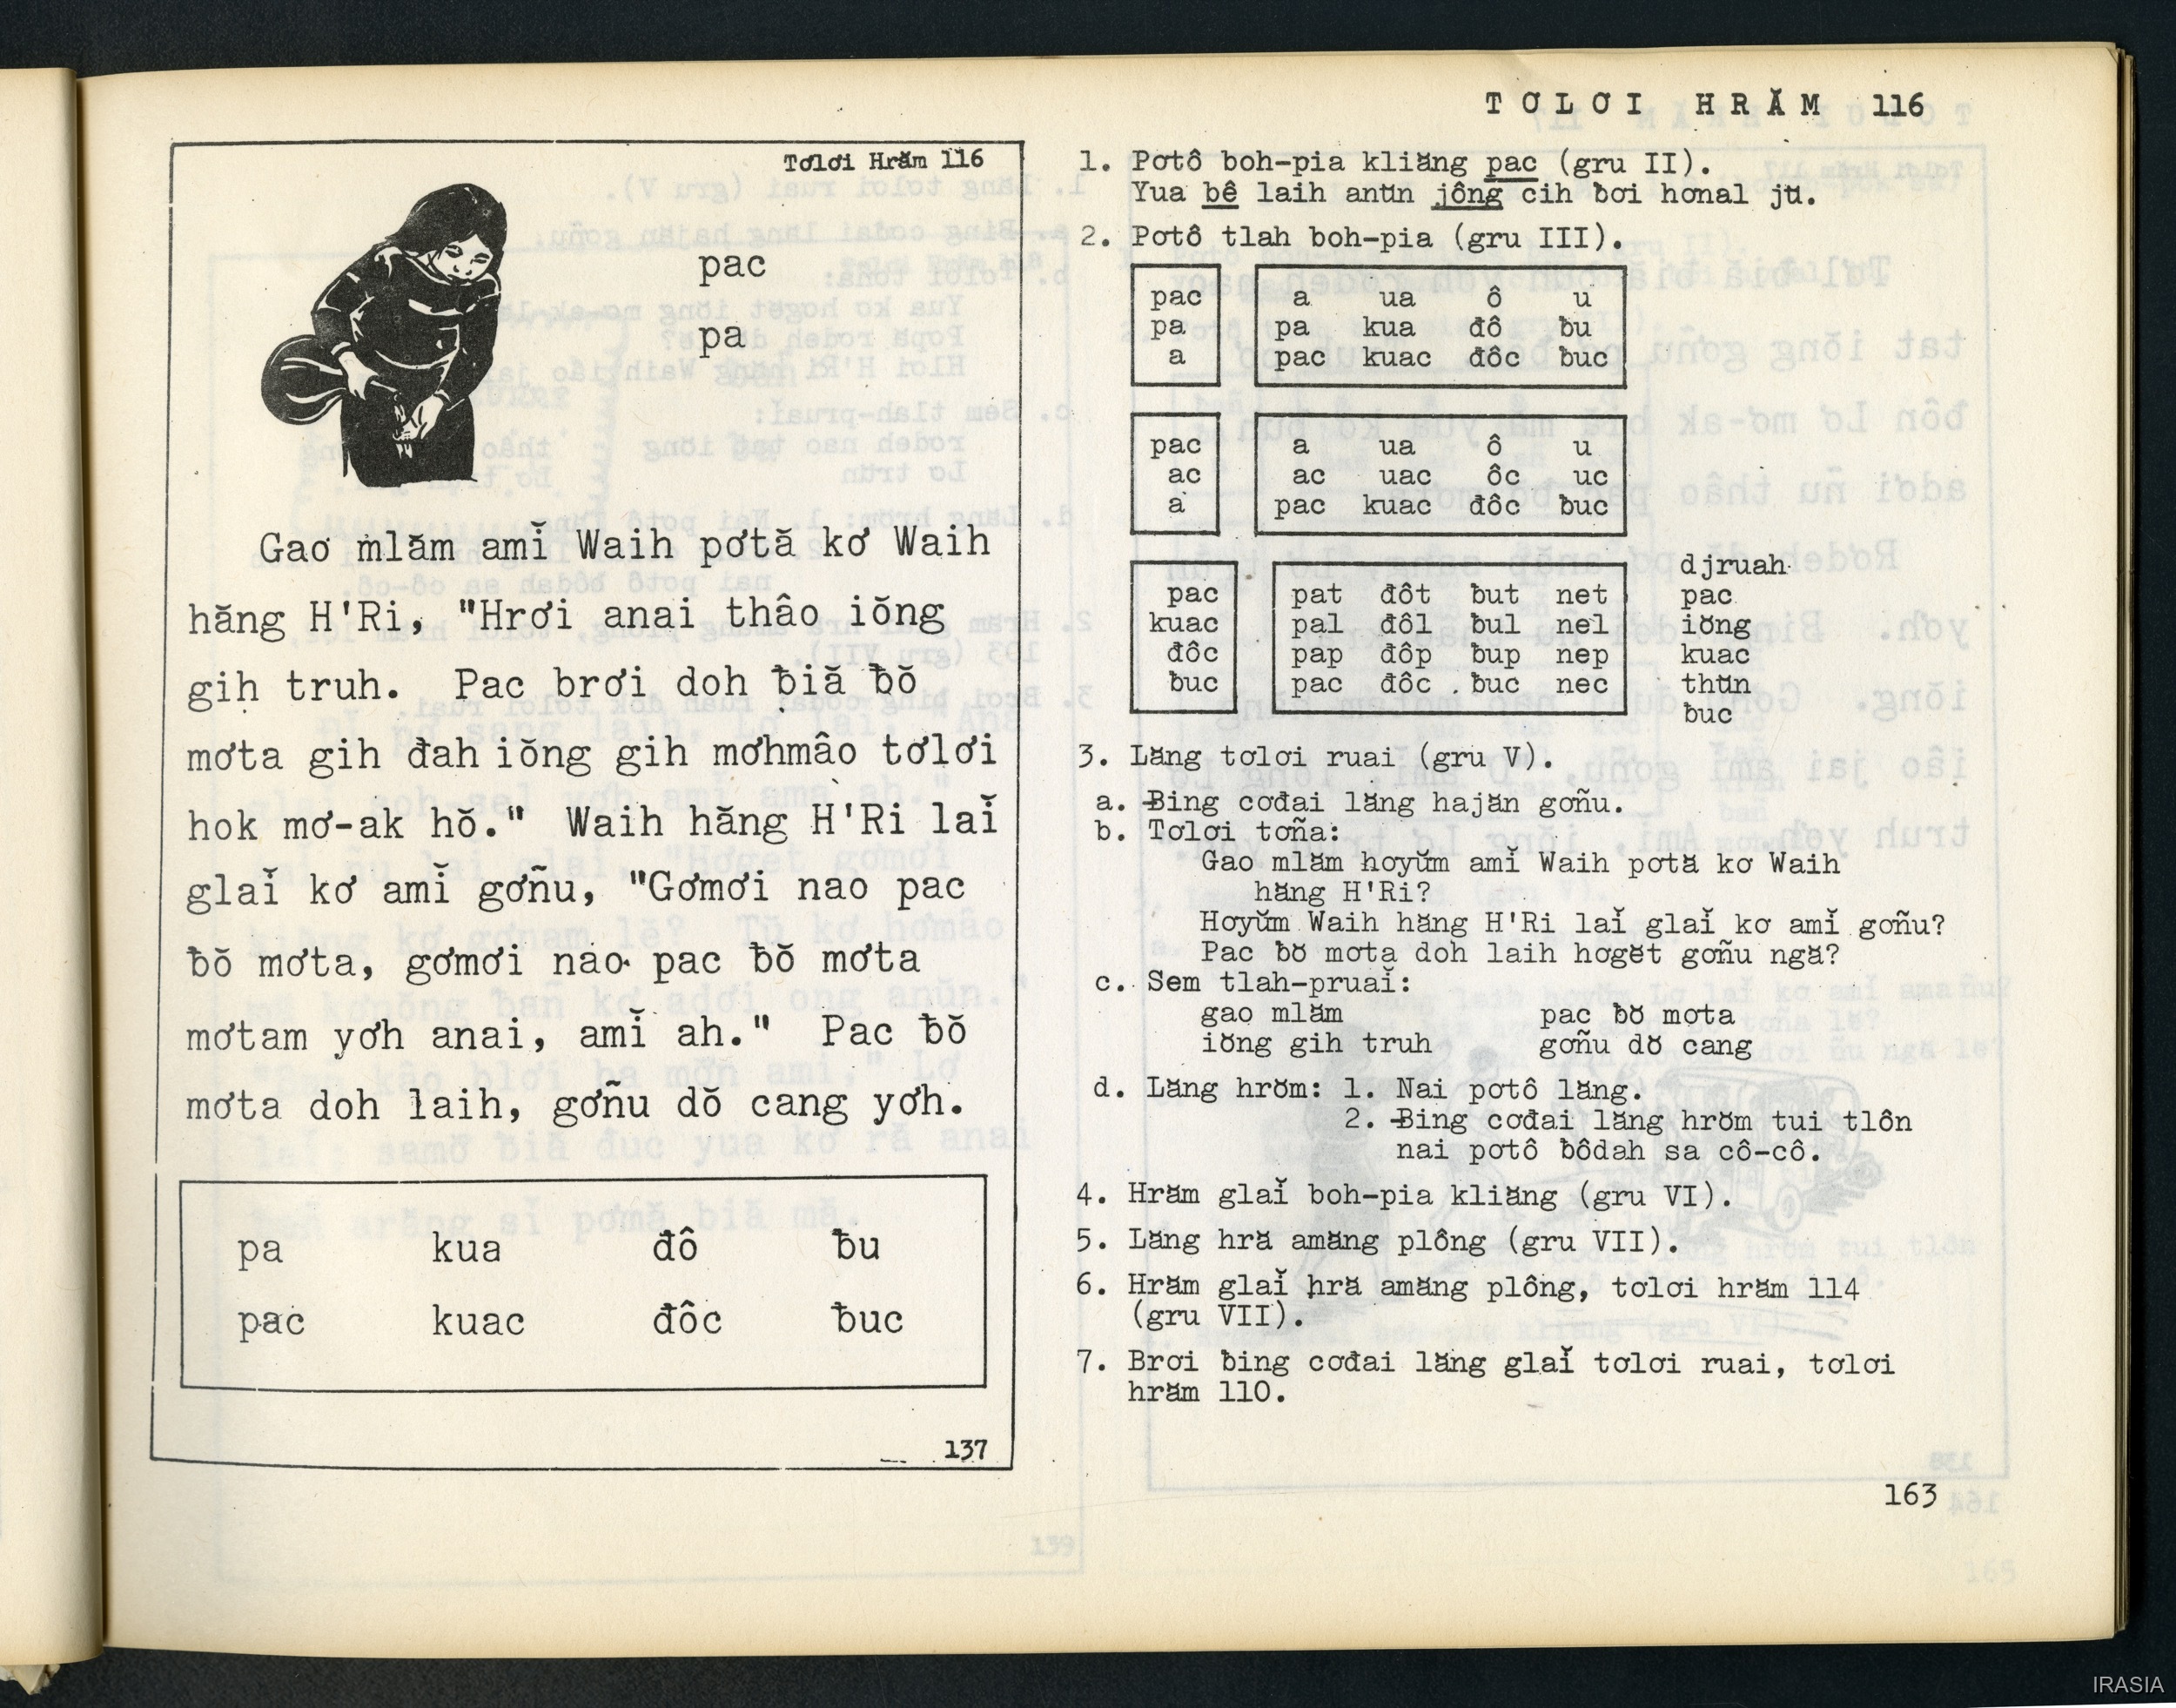 Tơlơi Hrăm 116
pac
pa
Gao mlăm amĭ Waih pơtă kơ Waih
hăng H'Ri, "Hrơi anai thâo iŏng
gih truh. Pac brơi doh ƀiă ƀŏ
mơta gih đah iŏng gih mơhmâo tơlơi
hok mơ-ak hŏ." Waih hăng H'Ri laĭ
glaĭ kơ amĭ gơñu, "Gơmơi nao pac
ƀŏ mơta, gơmơi nao pac ƀŏ mơta
mơtam yơh anai, amĭ ah." Pac ƀŏ
mơta doh laih, gơñu dŏ cang yơh.
pa kua đô ƀu
pac kuac đôc ƀuc
137
TƠLƠI HRĂM 116
1. Pơtô boh-pia kliăng pac (gru II).
Yua bê laih anŭn jông cih ƀơi hơnal jŭ.
2. Pơtô tlah boh-pia (gru III).
pac a ua ô u
pa pa kua đô ƀu
a pac kuac đôc ƀuc
pac a ua ô u
ac ac uac ôc uc
a pac kuac đôc ƀuc
djruah
pac pat đôt ƀut net pac
kuac pal đôl ƀul nel iŏng
đôc pap đôp ƀup nep kuac
ƀuc pac đôc ƀuc nec thŭn
ƀuc
3. Lăng tơlơi ruai (gru V).
a. Ƀing cơđai lăng hajăn gơñu.
b. Tơlơi tơña:
Gao mlăm hơyŭm amĭ Waih pơtă kơ Waih
hăng H'Ri?
Hơyŭm Waih hăng H'Ri laĭ glaĭ kơ amĭ gơñu?
Pac ƀŏ mơta doh laih hơgĕt gơñu ngă?
c. Sem tlah-pruaĭ:
gao mlăm pac ƀŏ mơta
iŏng gih truh gơñu dŏ cang
d. Lăng hrŏm: 1. Nai pơtô lăng.
2. Ƀing cơđai lăng hrŏm tui tlôn
nai pơtô ƀôdah sa cô-cô.
4. Hrăm glaĭ boh-pia kliăng (gru VI).
5. Lăng hră amăng plông (gru VII).
6. Hrăm glaĭ hră amăng plông, tơlơi hrăm 114
(gru VII).
7. Brơi ƀing cơđai lăng glaĭ tơlơi ruai, tơlơi
hrăm 110.
163
IRASIA